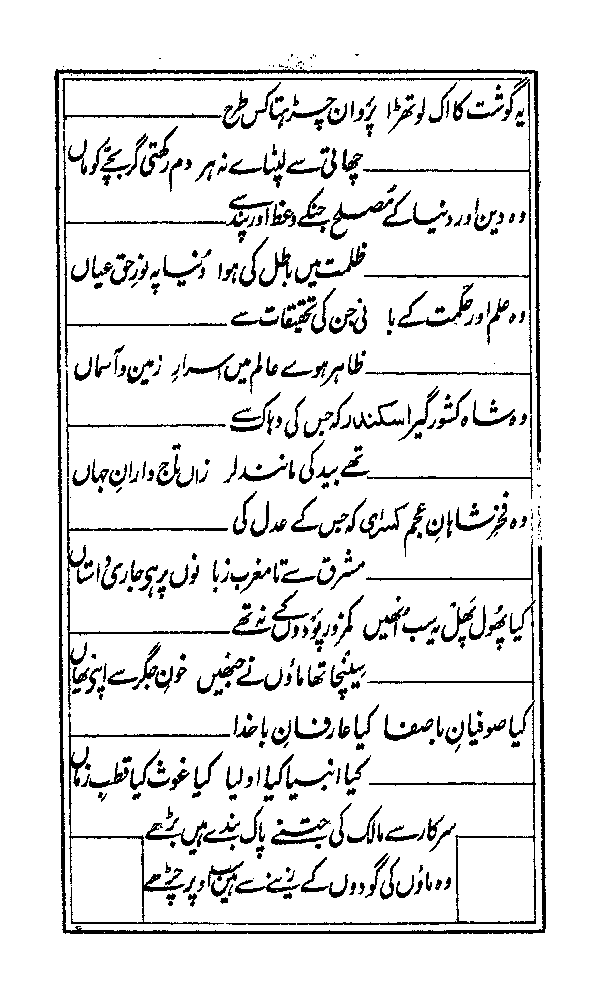 یہ گوشت کا اک لوتھڑا پروان چڑہتا کس طرح
چھاتی سے لپٹاے نہ ہر دم رکھتی گر بچے کو ماں
وہ دین اور دنیا کے مصلح جنکے وعظ اور پند سے
ظلمت میں باطل کی ہوا دنیا پہ نور حق عیاں
وہ علم اور حکمت کے بانی جن کی تحقیقات سے
ظاہر ہوے عالم میں اسرارِ زمین و آسماں
وہ شاہ کشور گیر اسکندر کہ جس کی دہاک سے
تھے بید کی مانند لرزاں تاج دارانِ جہاں
وہ فخر شاہانِ عجم کسریٰ کہ جس کے عدل کی
مشرق سے تا مغرب زبانوں پر ہے جاری داستاں
کیا پھول پھل یہ سب اُنھیں کمزور پودوں کے نہ تھے
سینچا تھا ماؤں نے جنھیں خونِ جگر سے اپنے یہاں
کیا صوفیانِ با صفا کیا عارفانِ با خدا
کیا انبیا کیا اولیا کیا غوث کیا قطب زماں
سرکار سے مالک کی جتنے پاک بندے ہیں بڑھے
وہ ماؤں کی گودوں کے زینے سے ہیں سب اوپر چڑھے